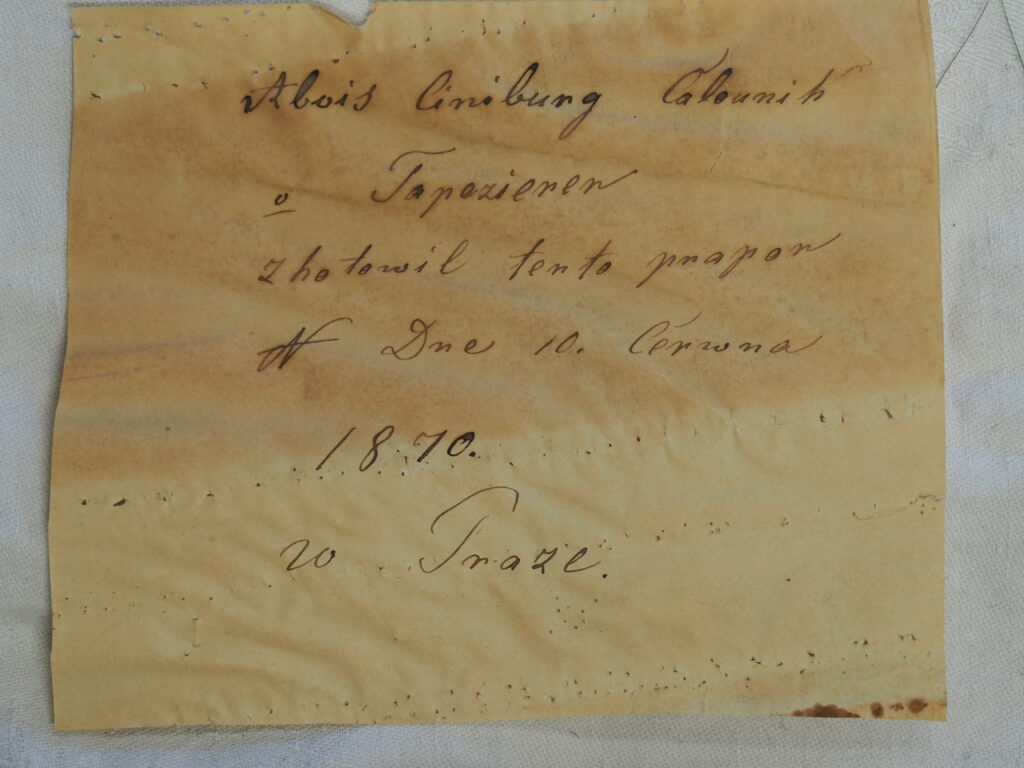 Alois Ciniburg Čalounik
o Tapezierer
zhotowil tento prapor
N Dne 10. Června
1870.
w Praze.